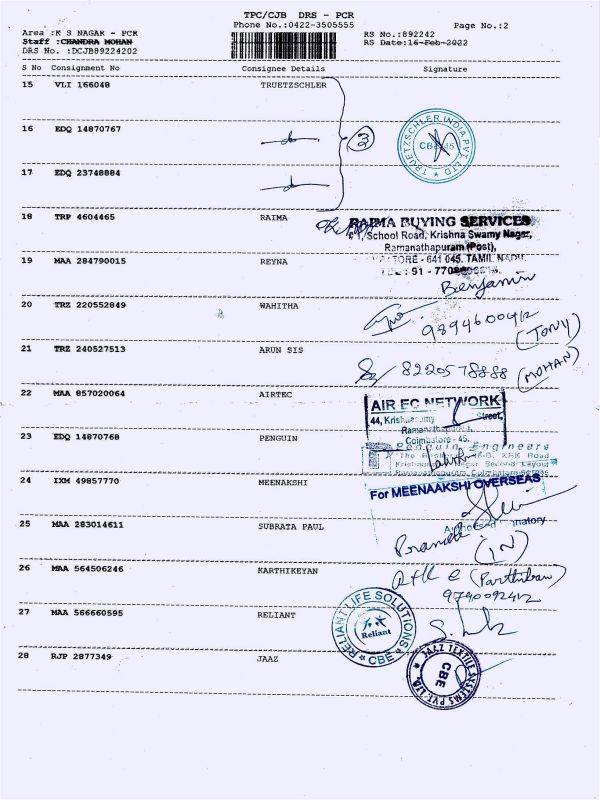 TPC/CJB DRS - PCR
Phone No.:0422-3505555
Page No.:2
Area :K S NAGAR - PCR
Staff :CHANDRA MOHAN
DRS No. :DCJB89224202
RS No.:892242
RS Date:16-Feb-2022
S No Consignment No Consignee Details Signature
15 VLI 166048 TRUETZSCHLER
3
TRUETZSCHLER INDIA PVT LTD
16 EDQ 14870767
17 EDQ 23748884
18 TRP 4604465 RAIMA
RAIMA BUYING SERVICES
School Road, Krishna Swamy Nagar,
Ramanathapuram (Post),
641 045. TAMIL NADU
19 MAA 284790015 REYNA
Benjamin
20 TRZ 220552849 WAHITHA
9894600412
(TONY)
21 TRZ 240527513 ARUN SIS
8220578888
(MOHAN)
22 MAA 857020064 AIRTEC
AIR EC NETWORK
44, Street,
Ramanathapuram,
Coimbatore - 45.
23 EDQ 14870768 PENGUIN
Penguin Engineers
24 IXM 49857770 MEENAKSHI
For MEENAAKSHI OVERSEAS
25 MAA 283014611 SUBRATA PAUL
(IN)
26 MAA 564506246 KARTHIKEYAN
(Parthiban)
9790092412
27 MAA 566660595 RELIANT
RELIANT LIFE SOLUTIONS
Reliant
CBE
28 RJP 2877349 JAAZ
JAAZ TEXTILE SYSTEMS PVT. LTD.
CBE